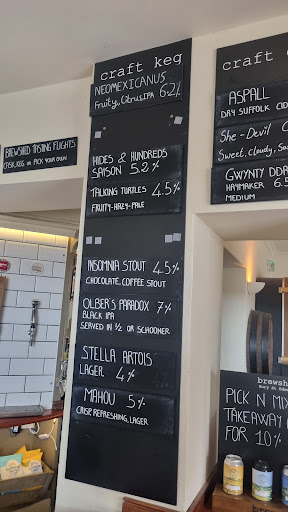 craft keg
NEOMEXICANUS 6.2%
Fruity, Citrus IPA
HIDES & HUNDREDS
SAISON 5.2%
TALKING TURTLES 4.5%
FRUITY-HAZY-PALE
INSOMNIA STOUT 4.5%
CHOCOLATE, COFFEE STOUT
OLBER'S PARADOX 7%
BLACK IPA
SERVED IN ½ OR SCHOONER
STELLA ARTOIS
LAGER 4%
MAHOU 5%
CRISP REFRESHING LAGER
BREWSHED TASTING FLIGHTS
CASK, KEG OR PICK YOUR OWN!
craft
ASPALL
DRY SUFFOLK CID
She-Devil
Sweet, Cloudy,
GWYNTY DDR
HAYMAKER 6.5
MEDIUM
brewsh
PICK N MIX
TAKEAWAY
FOR 10%